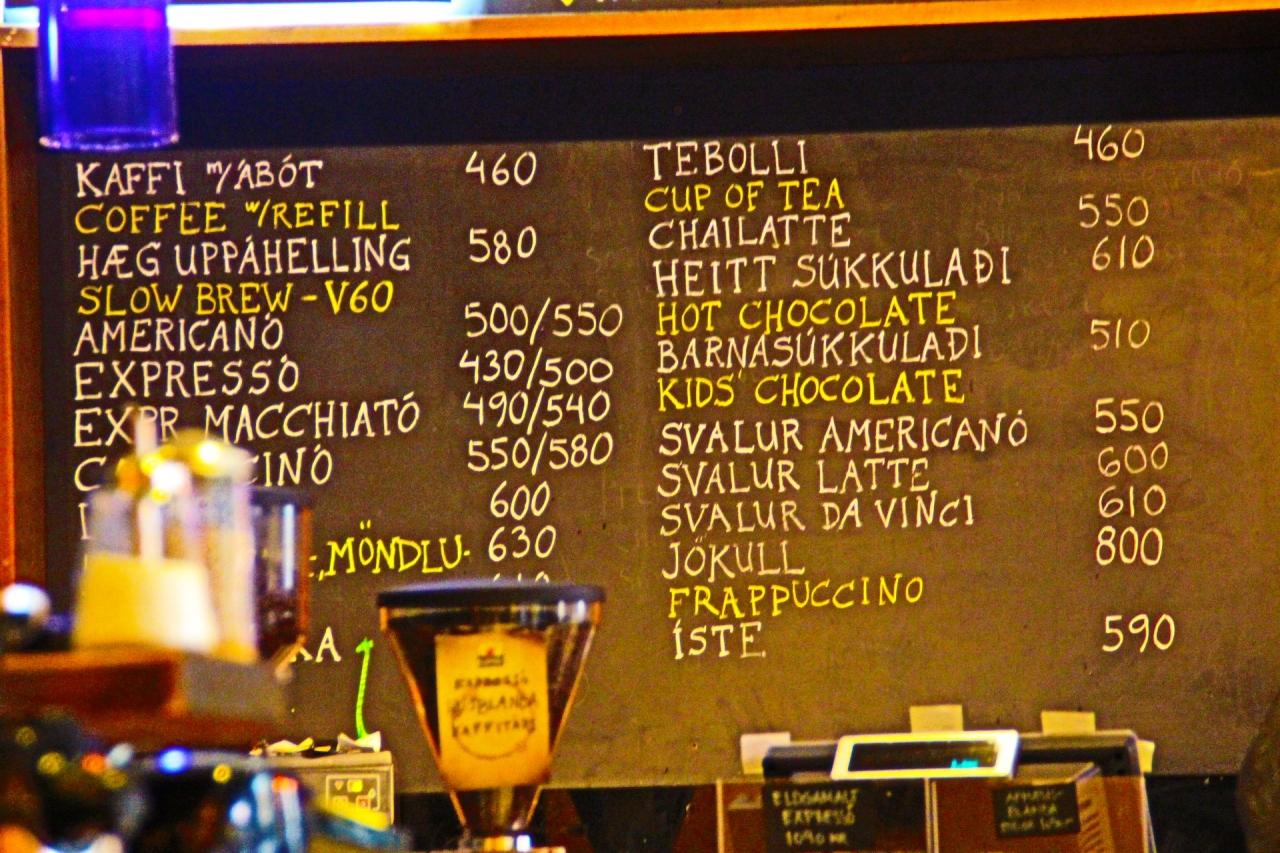 KAFFI m/ÁBÓT 460
COFFEE w/REFILL
HÆG UPPÁHELLING 580
SLOW BREW - V60
AMERICANÓ 500/550
EXPRESSÓ 430/500
EXPR MACCHIATÓ 490/540
550/580
600
MÖNDLU- 630
TEBOLLI 460
CUP OF TEA
CHAILATTE 550
HEITT SÚKKULAÐI 610
HOT CHOCOLATE
BARNASÚKKULAÐI 510
KIDS' CHOCOLATE
SVALUR AMERICANÓ 550
SVALUR LATTE 600
SVALUR DA VINCI 610
JÖKULL 800
FRAPPUCCINO
ÍSTE 590
EXPRESSÓ
1090 KR